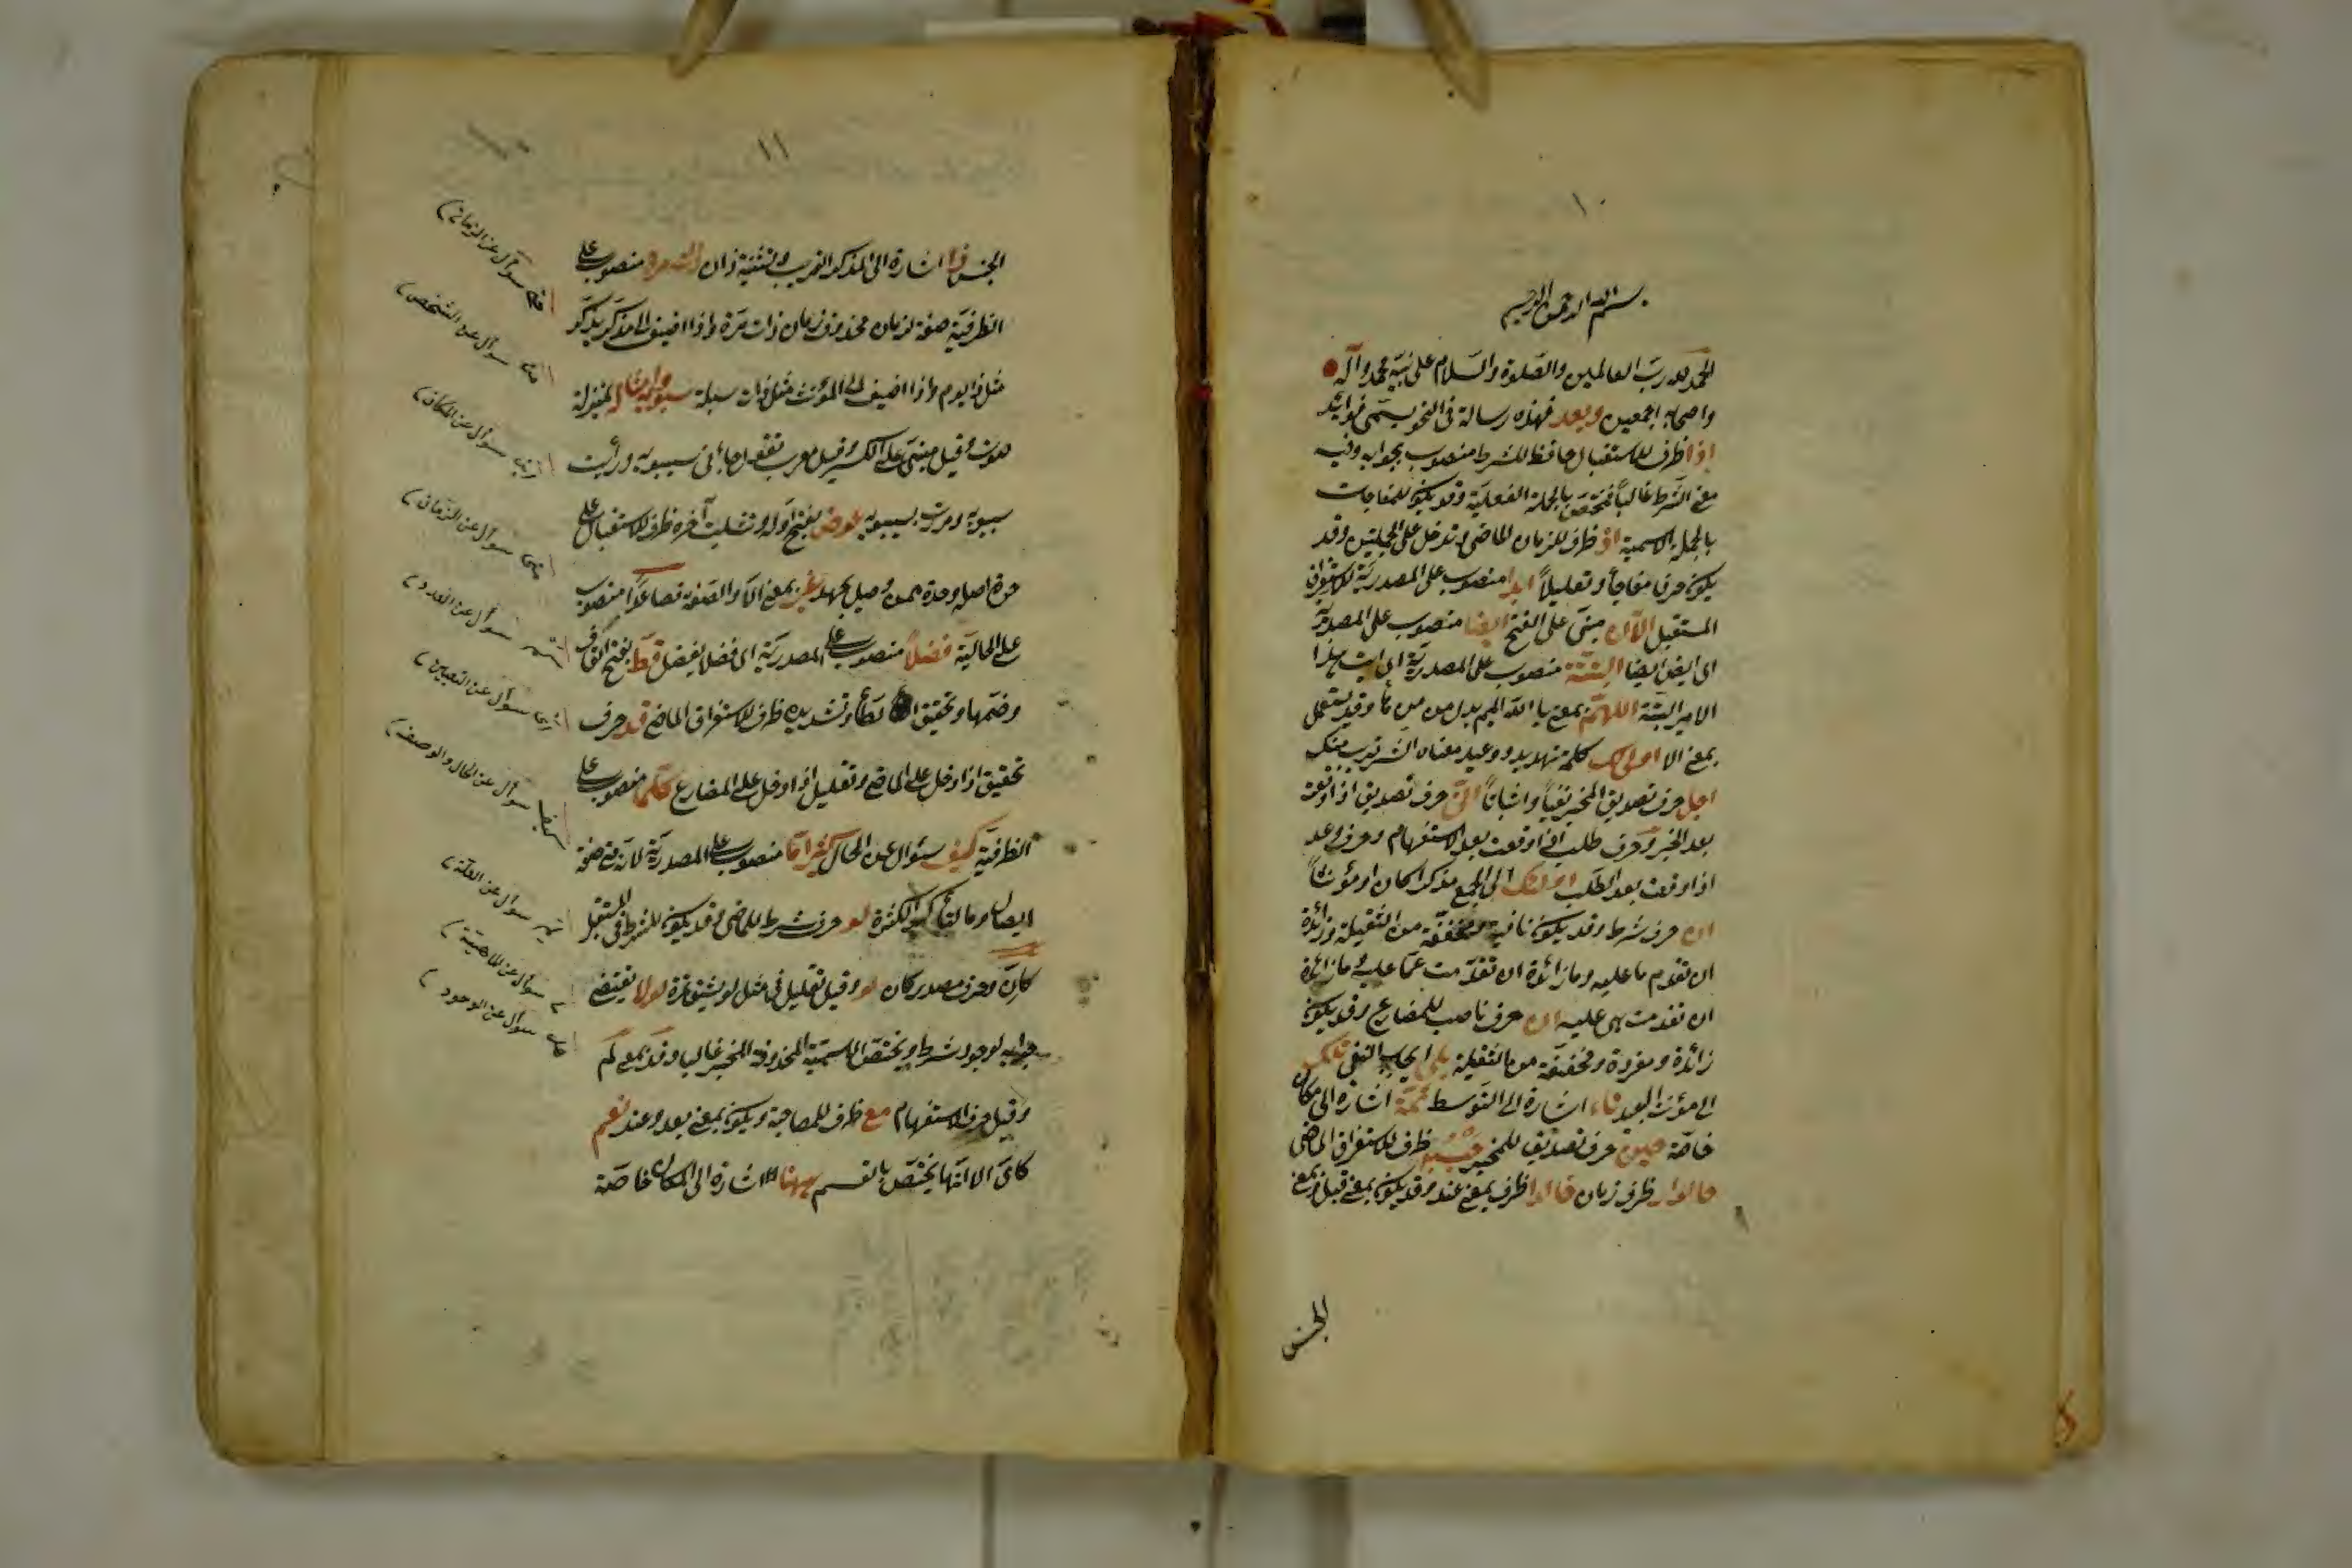 ١٠
بسم الله الرحمن الرحيم
الحمد لله رب العالمين والصلوة والسلام على نبيه محمد وآله
واصحابه اجمعين وبعد فهذه رسالة فى النحو يسمى فوائد
اذا ظرف للاستقبال حافظ للشرط منصوب بجوابه وفيه
معنى الشرط غالباً فتختص بالجملة الفعلية وقد يكون للمفاجات
بالجملة الاسمية اذ ظرف للزمان الماضى وتدخل على الجملتين وقد
يكون حرف مفاجأ وتعليلاً ابدا منصوب على المصدرية لاستغراق
المستقبل الآن مبنى على الفتح ايضا منصوب على المصدرية
اى ايض ايضا البتة منصوب على المصدرية اى ابت هذا
الامر البتة اللهم بمعنى يا الله الميم بدل من وقد يستعمل
بمعنى الا اولى لك كلمة تهديد ووعيد معناه الشر قريب منك
اجل حرف تصديق المخبر نفياً واثباتاً حرف تصديق اذا وقعت
بعد الخبر وحرف طلب اذا وقعت بعد الاستفهام وحرف وعد
اذا وقعت بعد الطلب اولئك الى الجمع مذكرا كان او مؤنثاً
ان حرف شرط وقد يكون نافية ومخففة من الثقيلة وزائدة
ان تقدم ما عليه وما زائدة ان تقدمت عما عليه وما زائدة
ان تقدمت هى عليه ان حرف ناصب للمضارع وقد يكون
زائدة ومفردة ومخففة من المثقلة بلى ايجاب النفى تلك
الى مؤنث البعيد اشارة الى المتوسط ثمة اشارة الى مكان
خاصة حرف تصديق للمخبر ظرف لاستغراق الماضى
ظرف زمان ظرف بمعنى عند وقد يكون بمعنى قبل وبمعنى
الجنس
١١
الجنس ذا اشارة الى المذكر القريب وتثنيته ذان ذات مرة منصوب على
الظرفية صفة لزمان محذوف زمان ذات مرة واذا اضيف الى مذكر يذكر
مثل ذا يوم واذا اضيف الى المؤنث مثل ذات سيبويه بمنزلة
صوت وقيل مبنى على الكسر وقيل معرب تقول جاءنى سيبويه ورأيت
سيبويه ومررت بسيبويه عوض بفتح اوله وتثليث آخره ظرف لاستقبال على
غير بمعنى الا والصفة فصاعداً منصوب
على الحالية فضلاً منصوب على المصدرية اى فضلا يفضل قط بفتح القاف
وضمها وتشديده ظرف لاستغراق الماضى قد حرف
تحقيق اذا دخل على الماضى وتقليل اذا دخل على المضارع كلما منصوب على
الظرفية كيف سئوال عن الحال كثيرا ما منصوب على المصدرية لانه صفة
وما لتأكيد الكثرة لو حرف شرط للماضى وقد يكون للشرط فى المستقبل
كان وحرف مصدر كان لو وقيل تقليل فى مثل لو بشق تمرة لولا يقتضى
جوابه لوجود شرط ويختص الاسمية المحذوفة الخبر غالبا وقد بمعنى لم
وقيل حرف الاستفهام مع ظرف للمصاحبة ويكون بمعنى بعد وعند نعم
كاى الا انها يختص بالقسم ههنا الاشارة الى المكان خاصة
سوآل عن الزمان
سوآل عن الشخص
اين سوآل عن المكان
متى سوآل عن الزمان
كم سوآل عن العدد
اى سوآل عن التعيين
كيف سوآل عن الحال والوصف
لم سوآل عن العلة
سوآل عن الماهية
سوآل عن الوجود